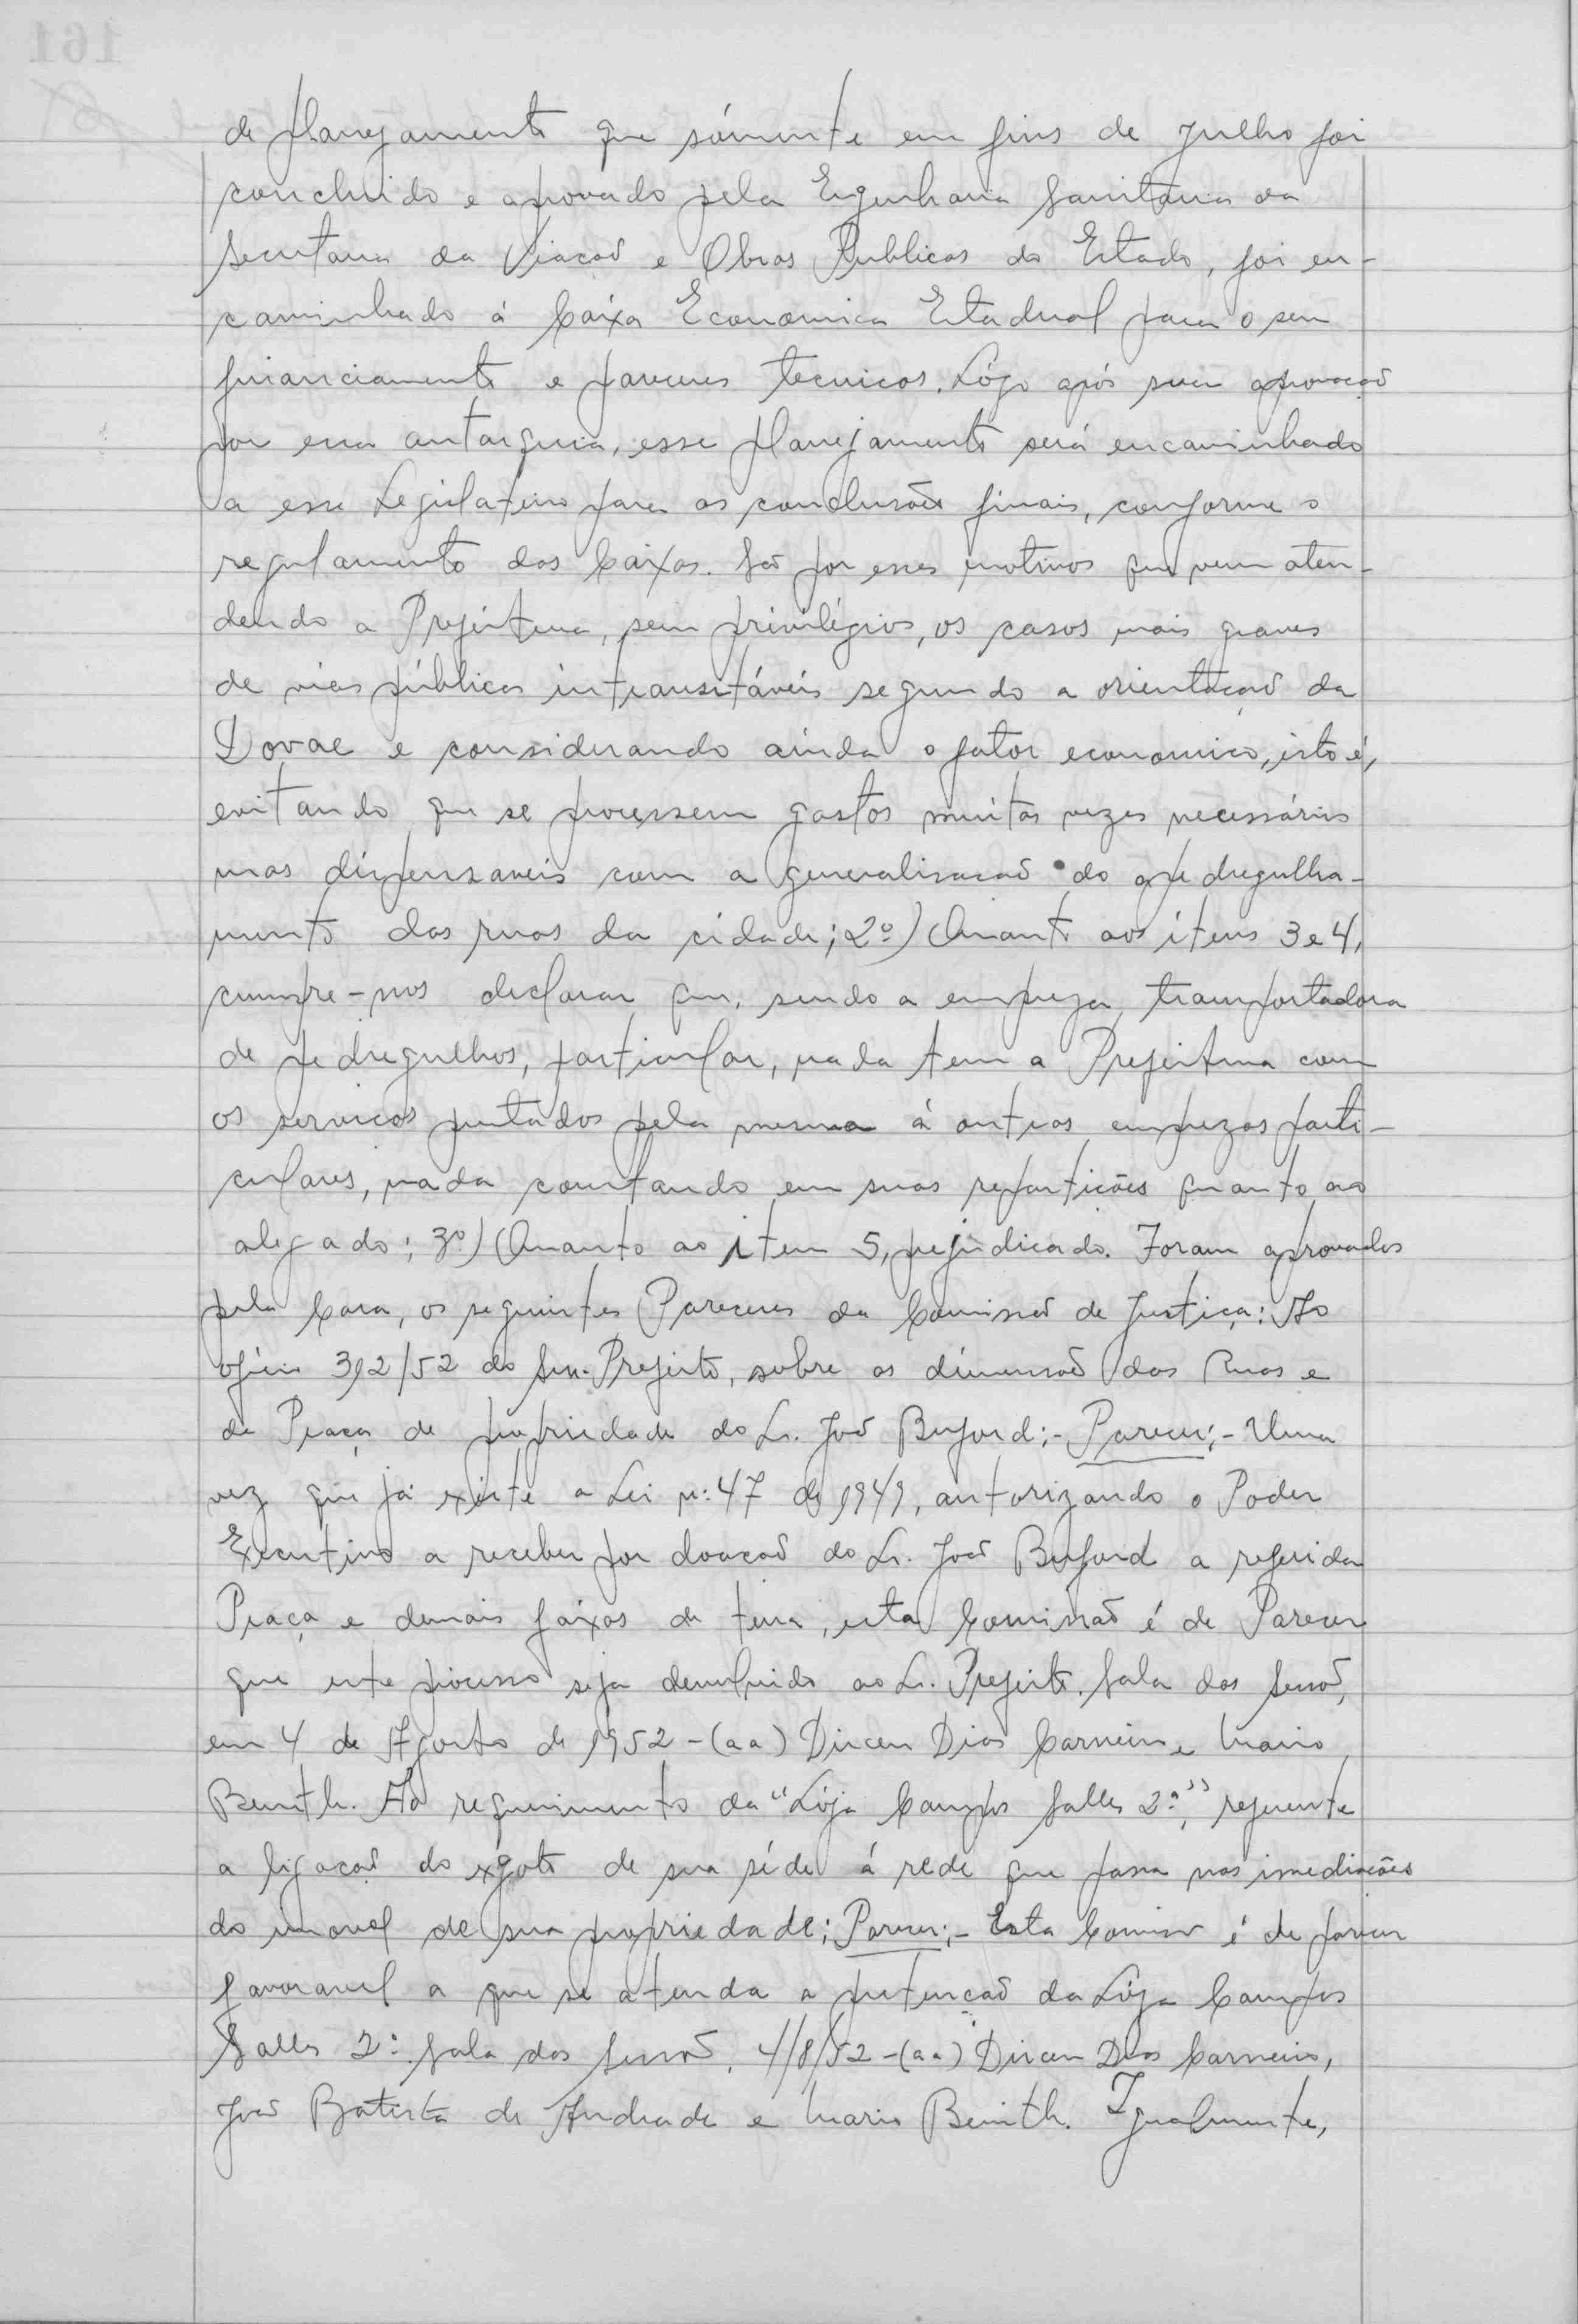 de planejamento que sómente em fins de Julho foi
concluido e aprovado pela Engenharia Sanitaria da
Secretaria da Viacaõ e Obras Publicas do Estado, foi en-
caminhado á Caixa Economica Estadual para o seu
financiamento e pareceres tecnicos. Lógo após sua aprovaçaõ
por essa autarquia, esse planejamento será encaminhado
a esse Legislativo para as conclusões finais, conforme o
regulamento das Caixas. Saõ por esses motivos que vem aten-
dendo a Prefeitura, sem privilégios, os casos mais graves
de vias públicas intransitáveis segundo a orientaçaõ da
Dovae e considerando ainda o fator economico, isto é,
evitando que se processem gastos muitas vezes necessários
mas dispensaveis com a generalisacaõ do apedregulha-
mento das ruas da cidade; 2º) Quanto aos ítens 3 e 4,
cumpre-nos declarar que, sendo a empreza transportadora
de pedregulhos, particular, nada tem a Prefeitura com
os servicos prestados pela mesma á outras emprezas parti-
culares, nada constando em suas repartições quanto ao
alegado; 3º) Quanto ao item 5, prejudicado. Foram aprovados
pela Casa, os seguintes Pareceres da Comissaõ de Justiça: Ao
ofício 392/52 do Snr. Prefeito, sobre as dimensaõ das Ruas e
da Praça de propriedade do Sr. Joaõ Buford:- Parecer:- Uma
vez que já existe a Lei nº: 47 de 1949, autorizando o Poder
Executivo a receber por doacaõ do Sr. Joaõ Buford a referida
Praça e demais faixas de terra, esta Comissaõ é de Parecer
que este processo seja devolvido ao Sr. Prefeito. Sala das Sessoẽ,
em 4 de Agosto de 1952 - (aa) Dirceu Dias Carneiro e Mario
Benith. Ao requerimento da "Lója Campos Salles 2ª," referente
a ligacaõ do exgoto de sua séde á rede que passa nas imediacões
do imovel de sua propriedade; Parecer:- Esta Comissaõ é de parecer
favoravel a que se atenda a pretencaõ da Lója Campos
Salles 2ª. Sala das Sessoẽ, 4/8/52 - (aa) Dirceu Dias Carneiro,
Joaõ Batista de Andrade e Mario Benith. Igualmente,